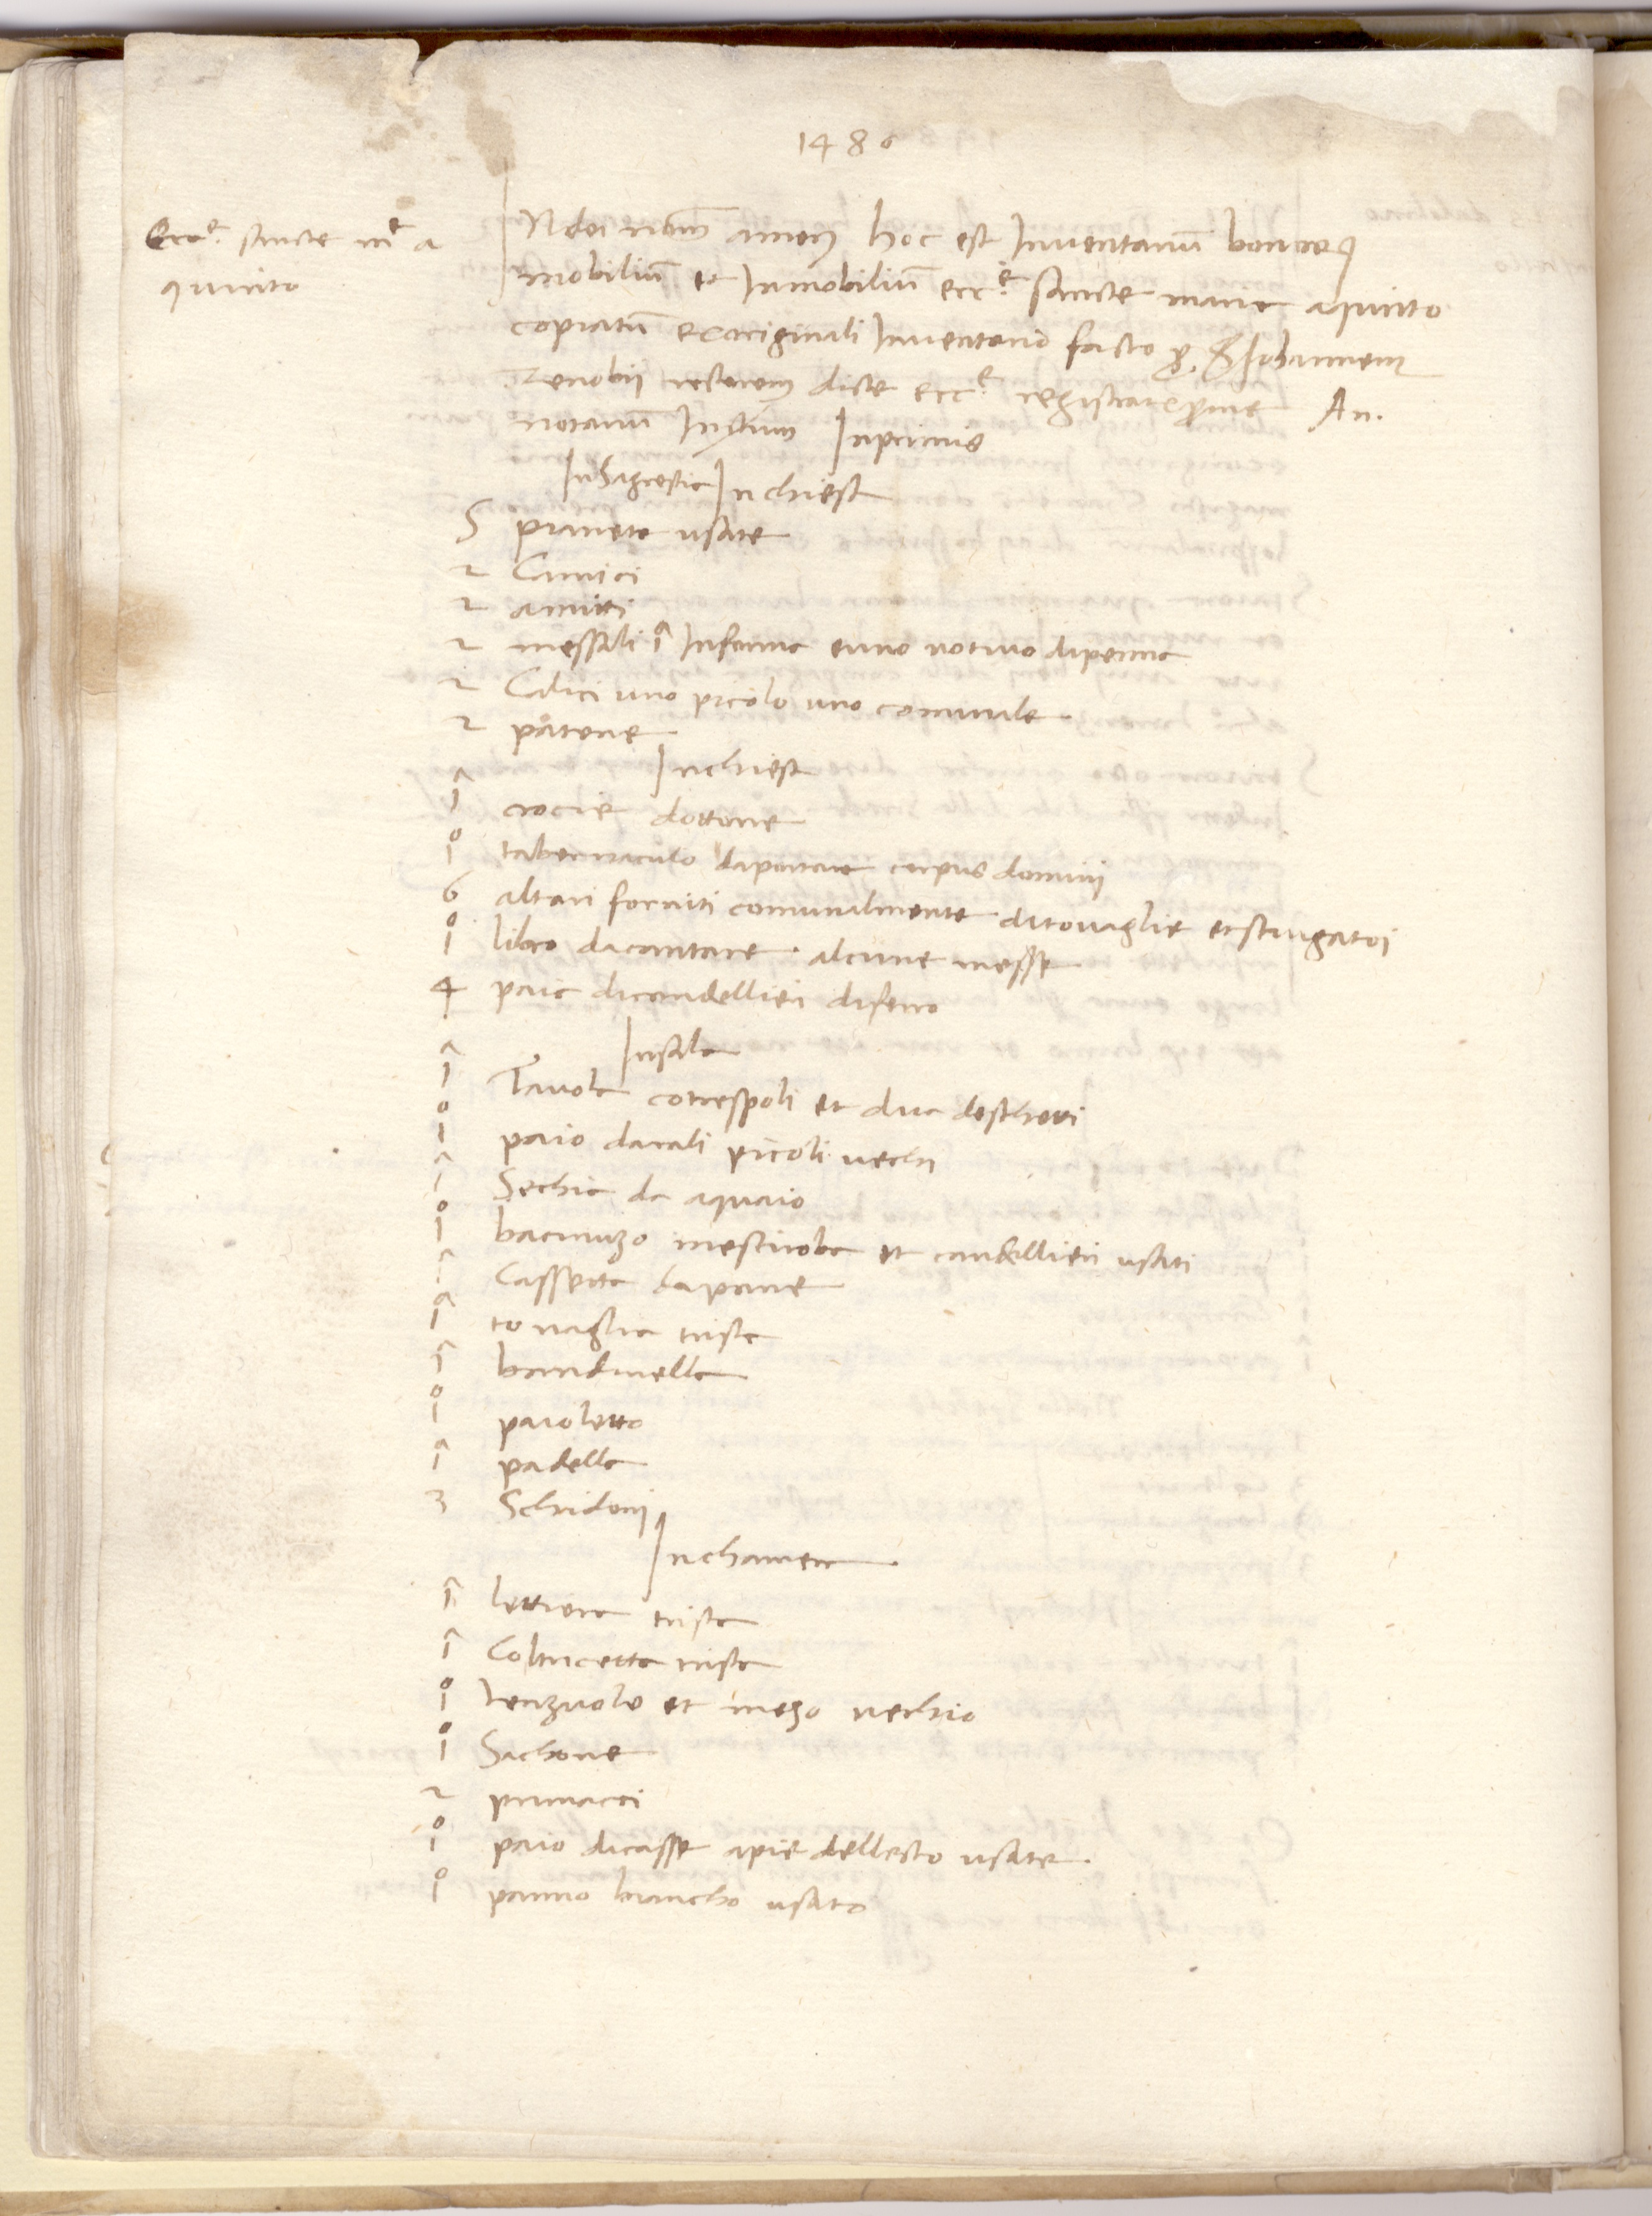 1486
Ecc.e sancte me a
quinto
IN dei nom̄ amen hoc est Inventariū bonor
mobiliū et Inmobiliū ecc.e sancte marie aquinto
copiatū exoriginali Inventario facto p. S Johannem
Zenobii rectorem dicte ecc.e registrate An.
notariū Inprimis
Insagrestia Inchiesa
5 pianete usate
2 Camici
2 amitti
2 messali 1a Informa euno votivo dipenna
2 Calici uno picolo uno comunale
2 patene
Inchiesa
1a crocie dottone
1o tabernaculo daportare corpus domini
6 altari forniti comunalmente ditovaglie etsciugatoi
1o libro dacantare alcune messe
4 paia dicandellieri diferro
Insala
1a Tavola cotrespoli et dua deschetti
1o paio darali picoli vechi
1a Sechia da aquaio
1o bacinuzo mesciroba et candellieri usati
1a Cassetta dapane
1a tovaglia trista
1a bandinella
1o paioletto
1a padella
3 Schidoni
Inchamera
1a lettiera trista
1a Coltricetta trista
1o lenzuolo et mezo vechio
1o Sachone
2 primacci
1o paio dicasse apie dellecto usate
1o panno biancho usato